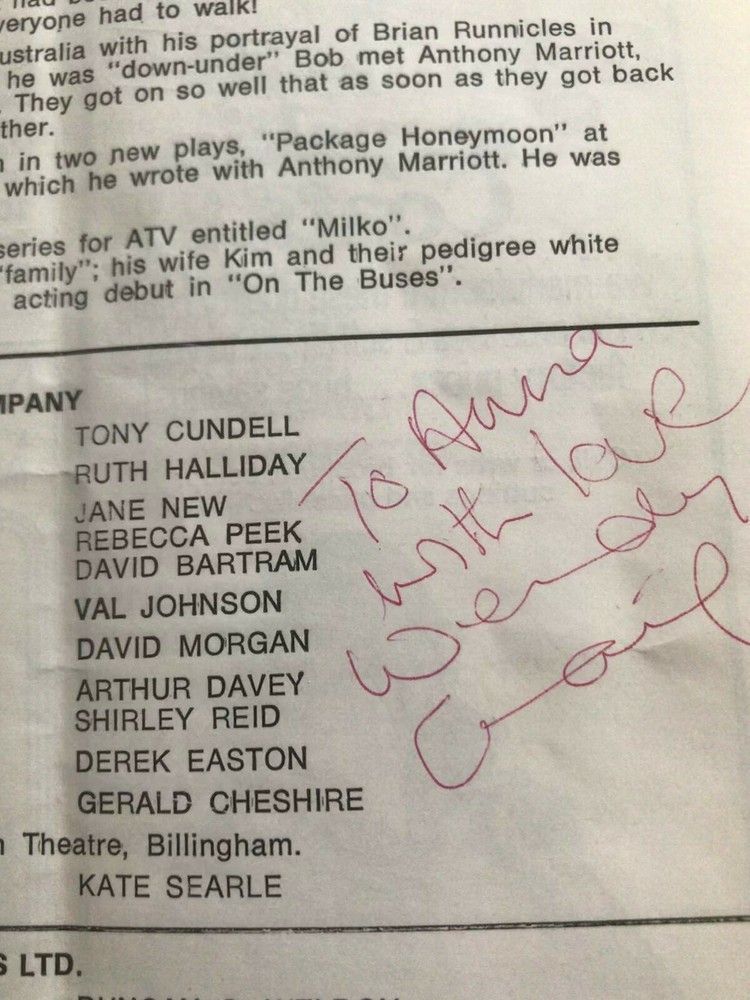 had
veryone had to walk!
ustralia with his portrayal of Brian Runnicles in
he was “down-under” Bob met Anthony Marriott,
. They got on so well that as soon as they got back
ther.
in two new plays, “Package Honeymoon” at
which he wrote with Anthony Marriott. He was
series for ATV entitled “Milko”.
“family”; his wife Kim and their pedigree white
acting debut in “On The Buses”.
MPANY
TONY CUNDELL
RUTH HALLIDAY
JANE NEW
REBECCA PEEK
DAVID BARTRAM
VAL JOHNSON
DAVID MORGAN
ARTHUR DAVEY
SHIRLEY REID
DEREK EASTON
GERALD CHESHIRE
Theatre, Billingham.
KATE SEARLE
To Anna
with love
Wendy
Craig
S LTD.